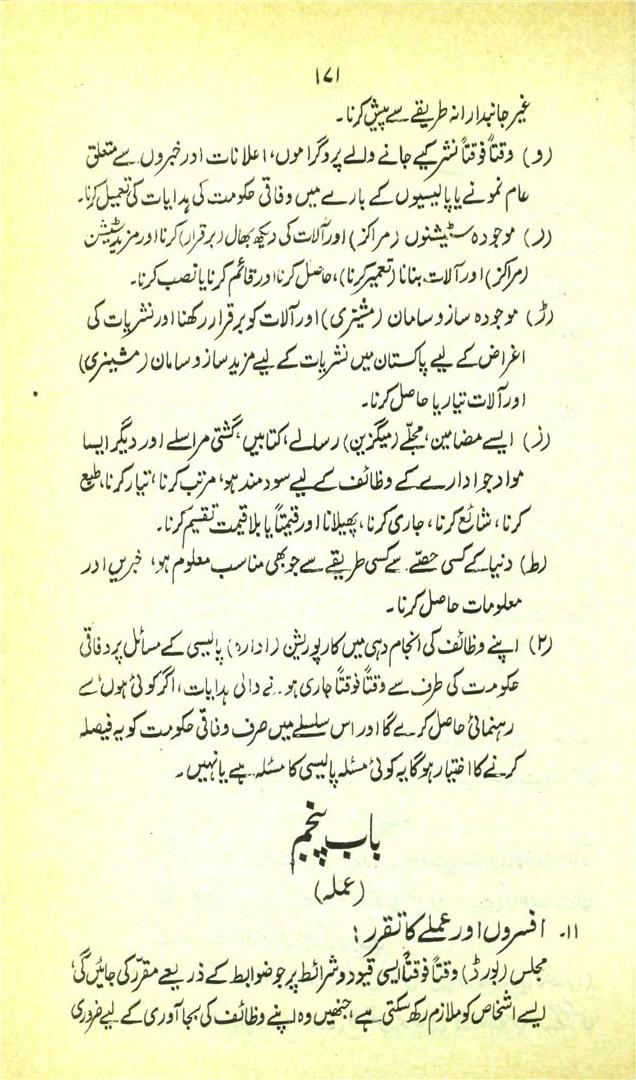 ۱۷۱
غیر جانبدارانہ طریقے سے پیش کرنا۔
(و) وقتاً فوقتاً نشر کیے جانے والے پروگراموں، اعلانات اور خبروں سے متعلق
عام نمونے یا پالیسیوں کے بارے میں وفاقی حکومت کی ہدایات کی تعمیل کرنا۔
(ر) موجودہ سٹیشنوں (مراکز) اور آلات کی دیکھ بھال (برقرار) کرنا اور مزید سٹیشن
(مراکز) اور آلات، بنانا (تعمیر کرنا)، حاصل کرنا اور قائم کرنا یا نصب کرنا۔
(ڑ) موجودہ ساز و سامان (مشینری) اور آلات کو برقرار رکھنا اور نشریات کی
اغراض کے لیے پاکستان میں نشریات کے لیے مزید ساز و سامان (مشینری)
اور آلات تیار یا حاصل کرنا۔
(ز) ایسے مضامین، مجلّے (میگزین) رسالے، کتابیں، گشتی مراسلے اور دیگر ایسا
مواد جو ادارے کے وظائف کے لیے سودمند ہو، مرتب کرنا، تیار کرنا، طبع
کرنا، شائع کرنا، جاری کرنا، پھیلانا اور قیمتاً یا بلا قیمت تقسیم کرنا۔
(ط) دنیا کے کسی حصّے سے کسی طریقے سے جو بھی مناسب معلوم ہو، خبریں اور
معلومات حاصل کرنا۔
(۲) اپنے وظائف کی انجام دہی میں کارپوریشن (ادارہ) پالیسی کے مسائل پر وفاقی
حکومت کی طرف سے وقتاً فوقتاً جاری ہونے والی ہدایات، اگر کوئی ہوں سے
رہنمائی حاصل کرے گا اور اس سلسلے میں صرف وفاقی حکومت کو یہ فیصلہ
کرنے کا اختیار ہوگا یہ کوئی مسئلہ پالیسی کا مسئلہ ہے یا نہیں۔
باب پنجم
(عملہ)
۱۱۔ افسروں اور عملے کا تقرر:
مجلس (بورڈ) وقتاً فوقتاً ایسی قیود و شرائط پر جو ضوابط کے ذریعے مقرر کی جائیں گی،
ایسے اشخاص کو ملازم رکھ سکتی ہے، جنھیں وہ اپنے وظائف کی بجا آوری کے لیے ضروری